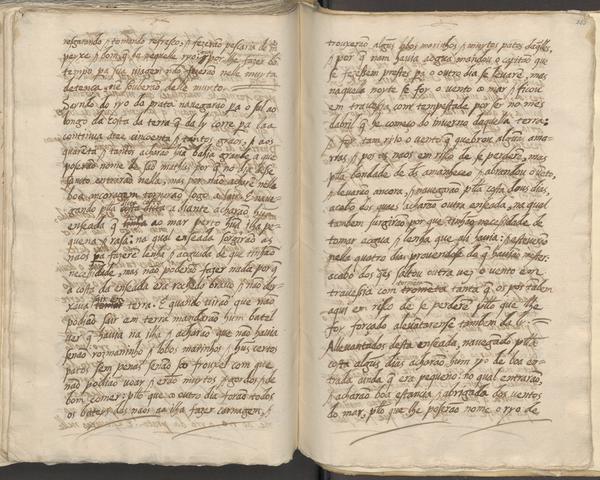 resgatando e tomando refresco, e fizerão pescaria de
peixe e bom q̃ ha naquele ryo, e por lhe fazer
tempo pa sua viagem não fizerão nelle muyta
detença, nẽ houverão delle muyto.
Sordo do ryo do prata navegarão pa o sul ao
longo da costa da terra q̃ dely corre pa laa
continua atee cincoenta e tantos graos, e aos
quarẽta e tantos acharão hũa bahia grande a que
poserão nome de são mathias por q̃ no dia desse
santo entrarão nella, mas por não acharẽ nella
boa ancoragem tornarão logo a sayr. E nave
gando pela a diante acharão hua
enseada q̃ tinha ao mar perto hũa ilha pe
quena e rasa: na qual enseada sorgirão as
naos pa fazerẽ lenha e aogoada de que tinhão
necessidade, mas não poderão fazer nada por q̃
a costa da enseada era rochedo bravo e não dei
xava terra. E quando virão que não
podião sair em terra mandarão hum batel
ver q̃ havia na ilha e acharão que não havia
senão rosmaninho e lobos marinhos e hũs certos
patos sem penas senão froxel com que
não podião voar e erão muytos e gordos e de
bom comer: pelo que o outro dia forão todos
os bateis das naos aa ilha fazer carnagem, e
trouxerão algũs lobos marinhos e muytos patos daq̃lles,
e por q̃ nam havia aogoa mandou o capitão que
se fizessem prestes pa o outro dia se levarẽ, mas
naquela noyte se foy o vento ao mar e ficou
em travessia com tempestade por ser no mes
dabril q̃ he começo do inverno daquella terra:
e foy tam rijo o vento q̃ quebrou algũas ama
rras e pos as naos em risco de se perderẽ, mas
pela bondade de ds amanheceo e abrandou o vẽto,
e levarão ancora, e navegarão pela costa dous dias,
acabo dos quaes acharão outra enseada, na qual
tambem surgirão por que tinhão necessidade de
tomar aogoa e lenha que aly havia: e estiverão
nella quatro dias provendose do q̃ havião mister:
acabo dos q̃es saltou outra vez o vento em
travessia com tormenta tanta q̃ os por tambem
aqui em risco de se perderẽ pelo que lhe
foy forçado alevãtarense tambem daly:
Allevantados desta enseada, navegãdo pela
costa algũs dias acharão hum ryo de boa en
trada ainda q̃ era pequeno: no qual entrarão,
e acharão boa estancia e abrigada dos ventos
do mar, pelo que lhe poserão nome o ryo de